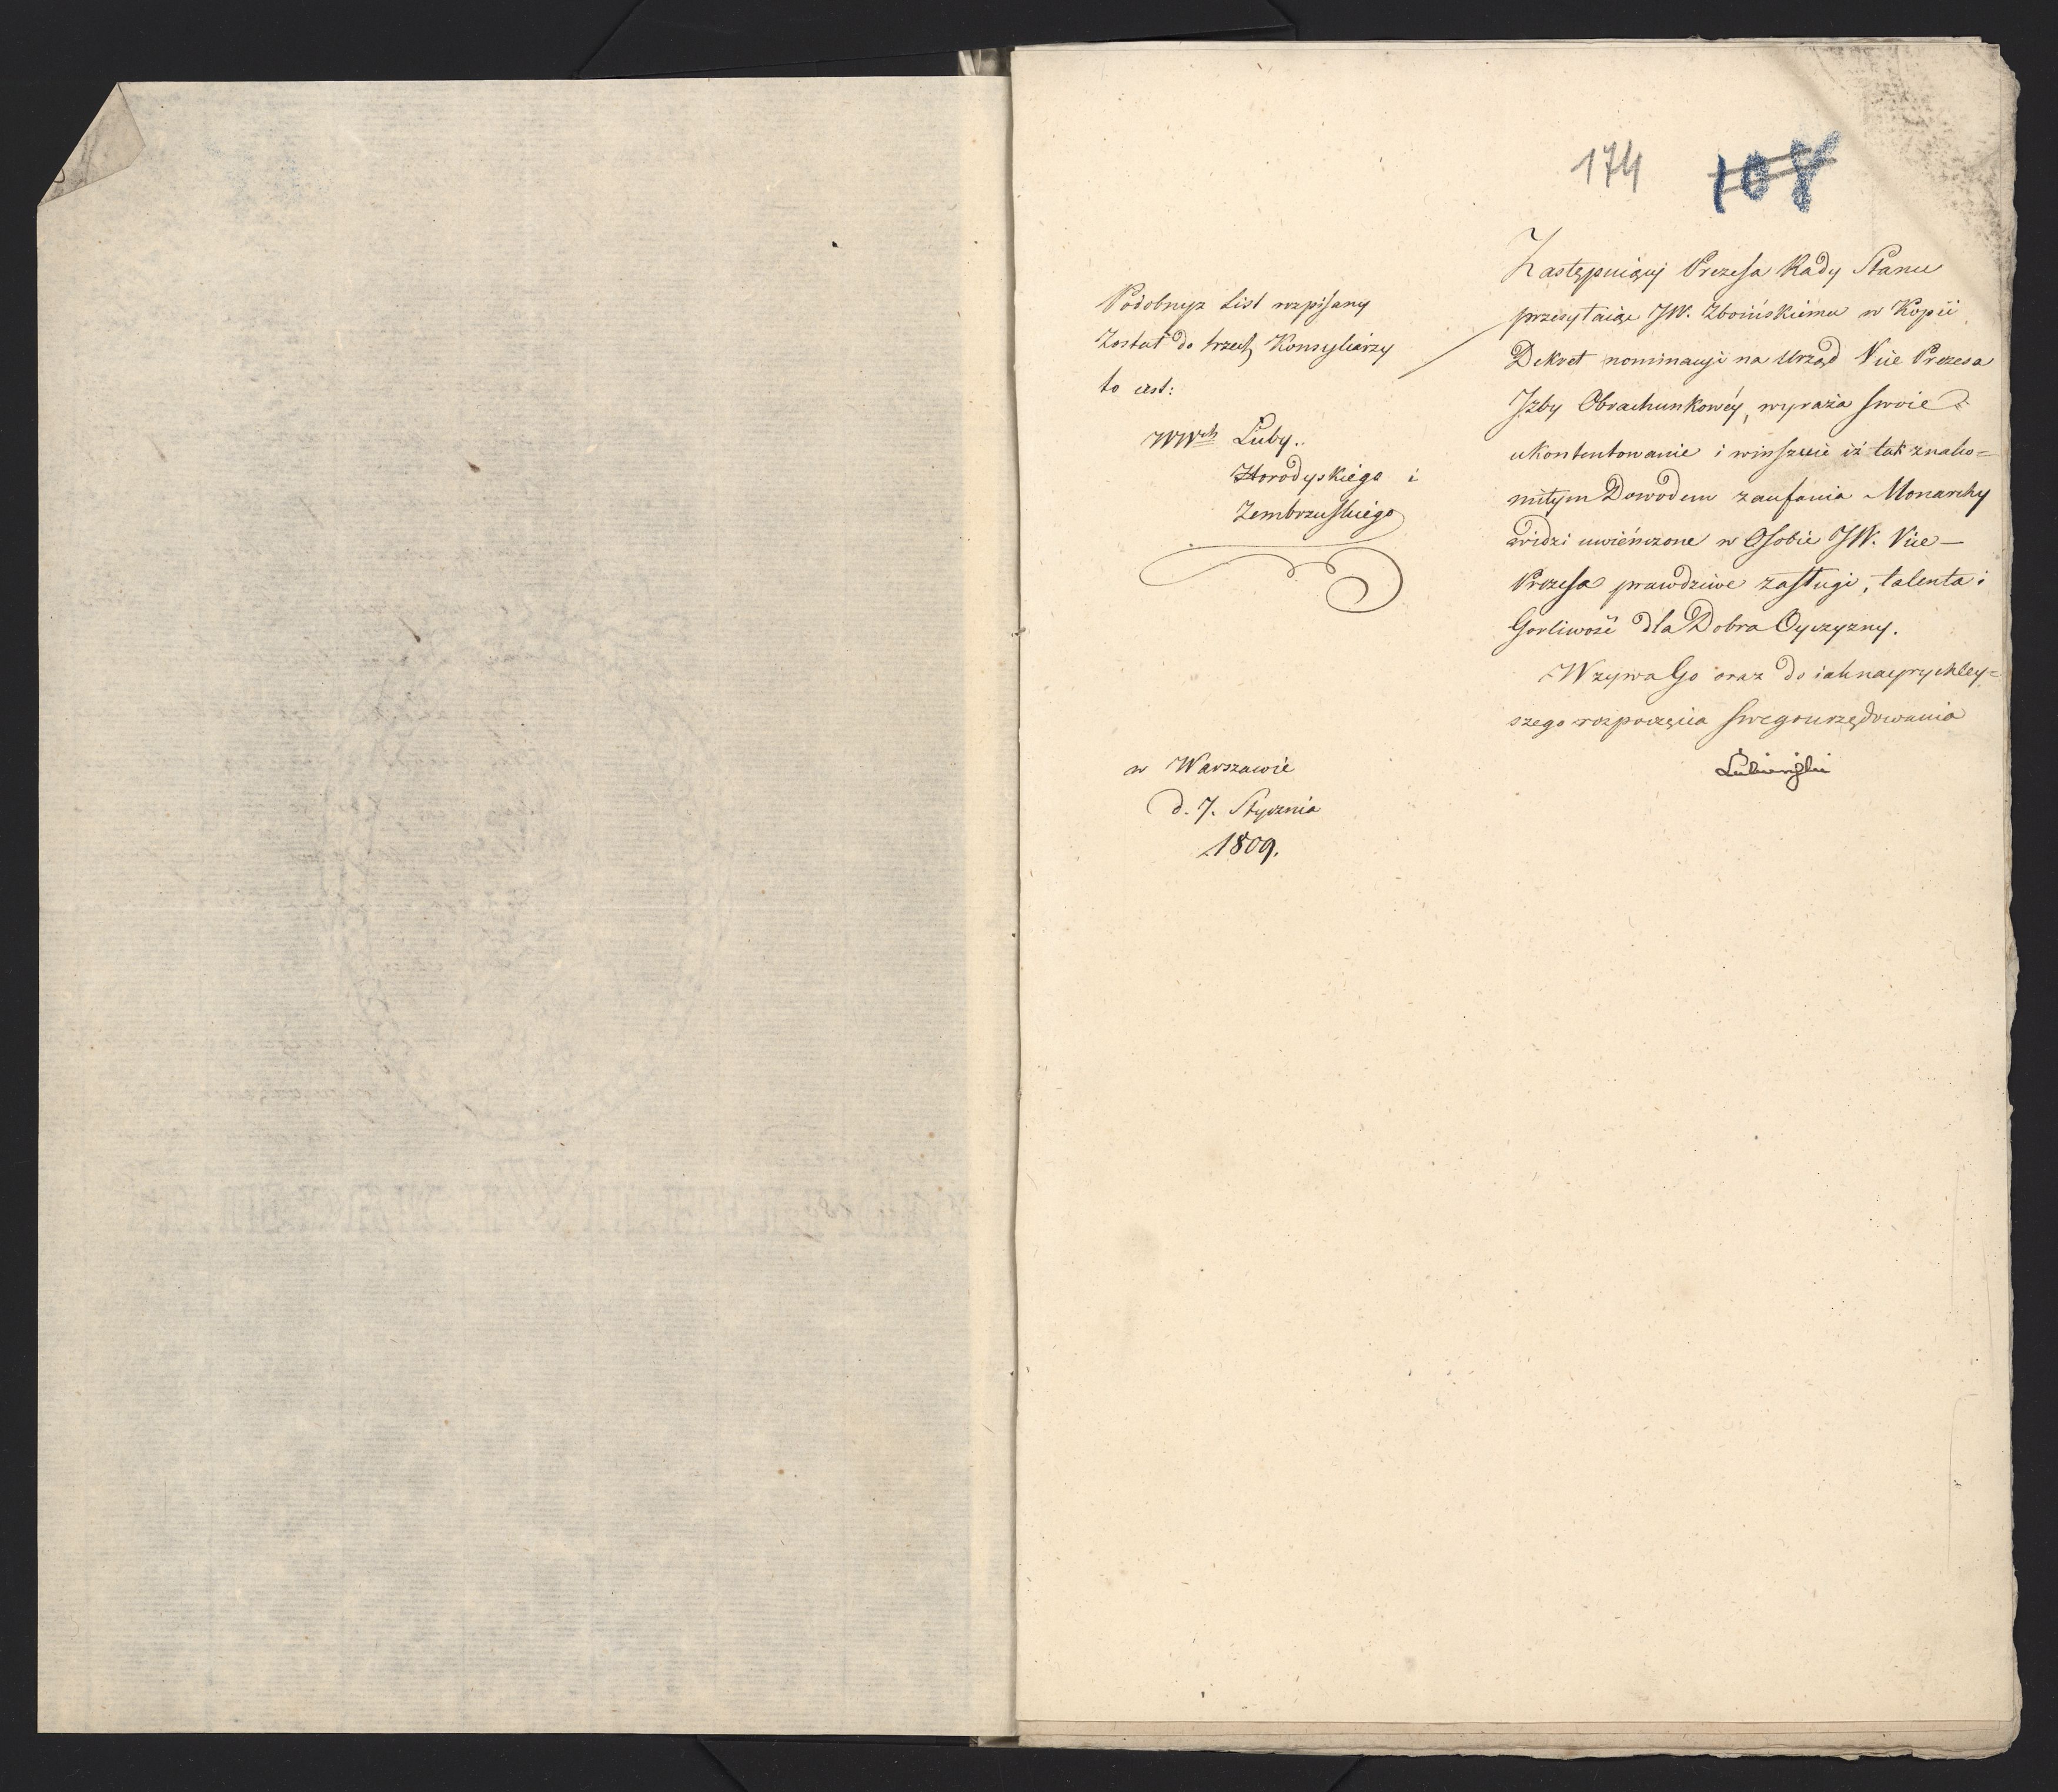 174 108
Podobnyż List rozpisany
Został do trzech Konsyliarzy
to iest:
WWch Luby..
Horodyskiego i
Zembrzuskiego
w Warszawie
d. 7. Stycznia
1809.
Zastępuiący Prezesa Rady Stanu
przesyłaiąc JW. Zboińskiemu w Kopii
Dekret nominacyi na Urząd Vice Prezesa
Izby Obrachunkowéy, wyraża swoie
ukontentowanie i winszuie iż tak znako=
mitym Dowodem zaufania Monarchy
widzi uwieńczone w Osobie JW. Vice—
Prezesa prawdziwe zasługi, talenta i
Gorliwość dla Dobra Oyczyzny.
Wzywa Go oraz do iaknayprychley=
szego rozpoczęcia swego urzędowania